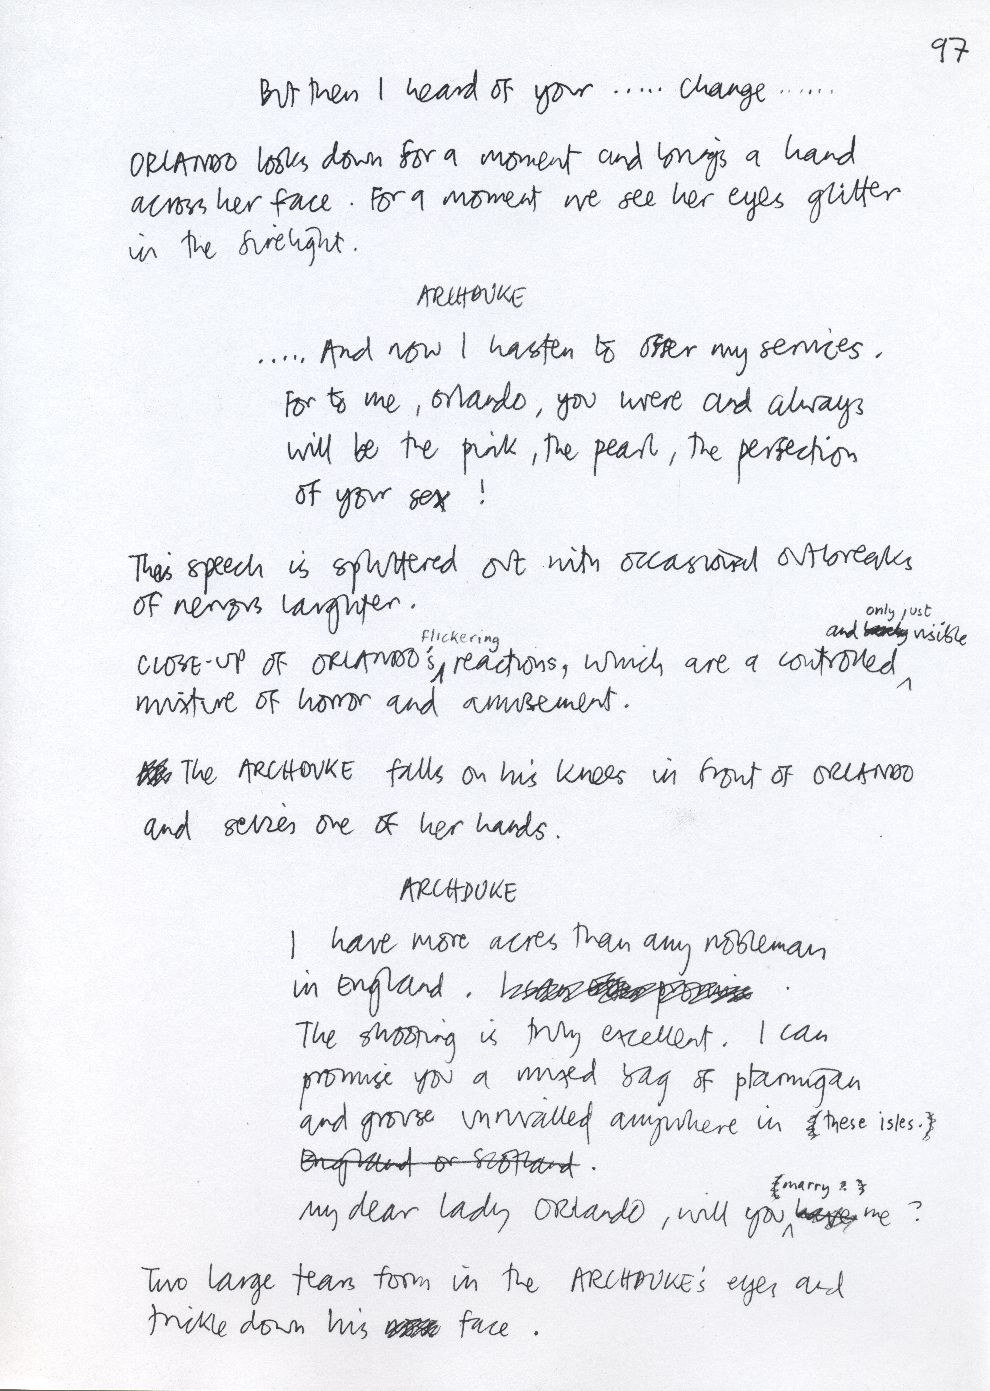 97
But then I heard of your ..... change ......
ORLANDO looks down for a moment and brings a hand
across her face. For a moment we see her eyes glitter
in the firelight.
ARCHDUKE
..... And now I hasten to offer my services.
For to me, Orlando, you were and always
will be the pink, the pearl, the perfection
of your sex!
This speech is spluttered out with occasional outbreaks
of nervous laughter.
only just
and barely visible
flickering
CLOSE-UP OF ORLANDO's reactions, which are a controlled
mixture of horror and amusement.
The ARCHDUKE falls on his knees in front of ORLANDO
and seizes one of her hands.
ARCHDUKE
I have more acres than any nobleman
in England.
The shooting is truly excellent. I can
promise you a mixed bag of ptarmigan
and grouse unrivalled anywhere in {these isles.}
England or Scotland.
{marry??}
My dear lady Orlando, will you have me?
Two large tears form in the ARCHDUKE's eyes and
trickle down his face.